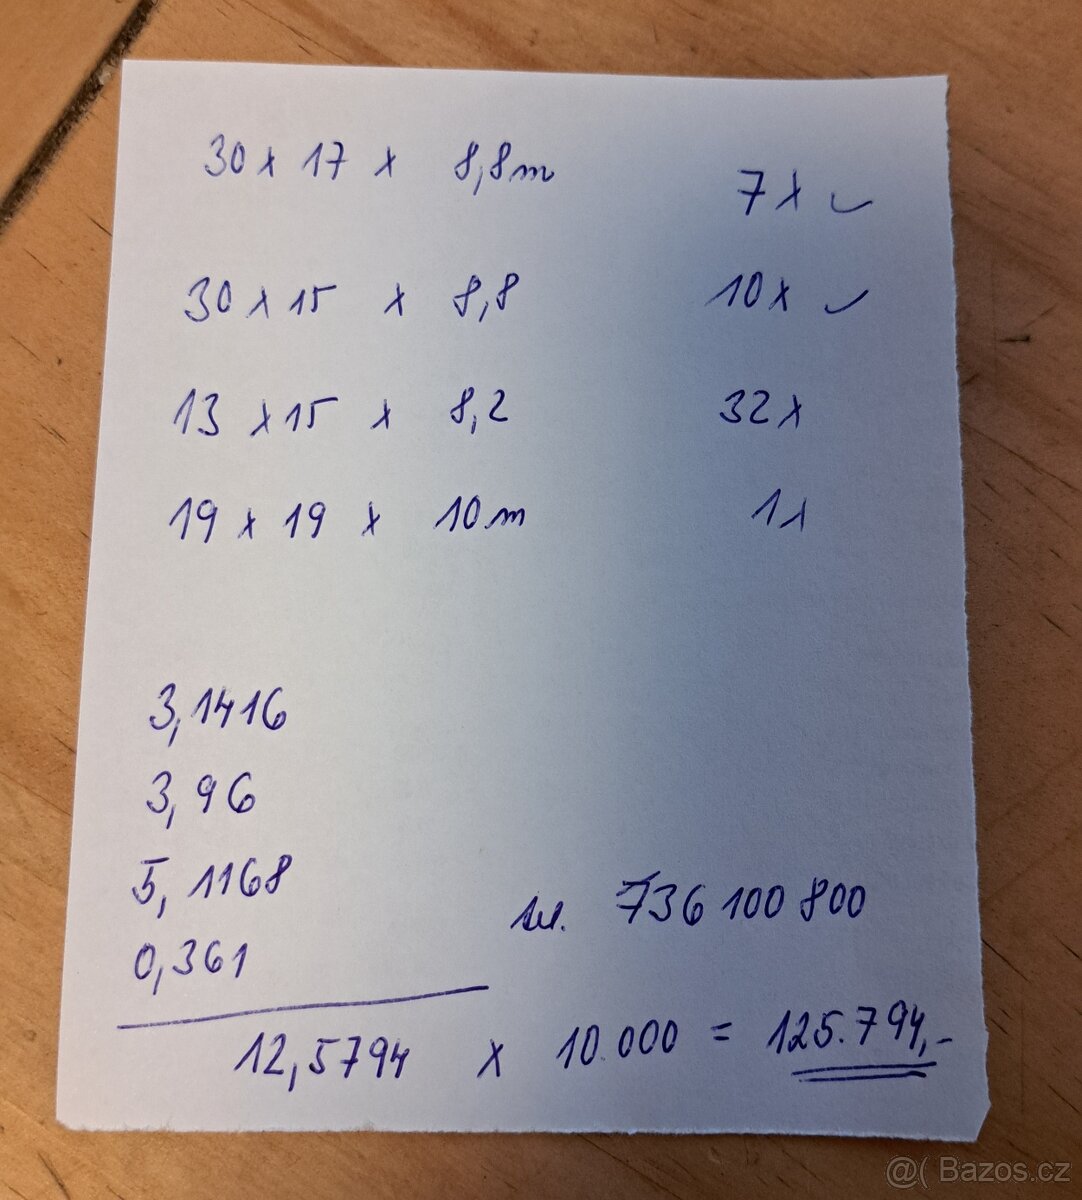 30 x 17 x 8,8m 7x ✓
30 x 15 x 8,8 10x ✓
13 x 15 x 8,2 32x
19 x 19 x 10m 1x
3,1416
3,96
5,1168
0,361
tel. 736 100 800
12,5794 x 10.000 = 125.794,-
@( Bazos.cz